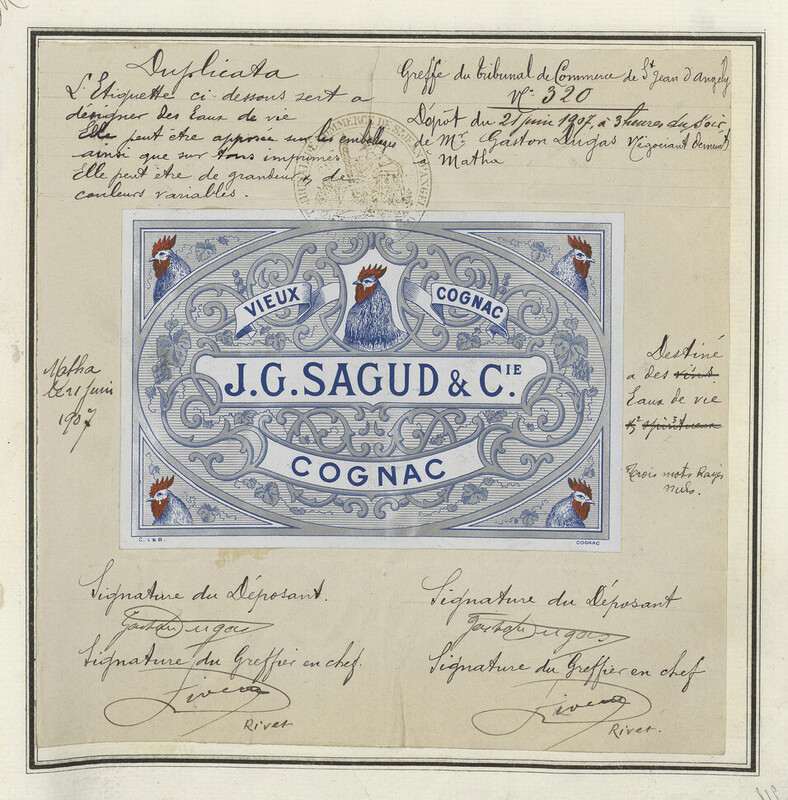 Duplicata
L'Etiquette ci-dessous sert a
désigner des Eaux de vie
Elle peut être apposée sur les emballages
ainsi que sur tous imprimés
Elle peut être de grandeur & de
couleurs variables.
Greffe du tribunal de Commerce de St Jean d'Angely
No 320
Dépôt du 21 juin 1907 à 3 heures du soir
de Mr Gaston Dugas Négociant demeurt
a Matha
VIEUX COGNAC
J.G. SAGUD & CIE
COGNAC
COGNAC
Matha
le 21 juin
1907
Destiné
a des vins
Eaux de vie
& spiritueux
Trois mots Rayés
nuls.
Signature du Déposant.
Gaston Dugas
Signature du Greffier en chef.
Rivet
Signature du Déposant
Gaston Dugas
Signature du Greffier en chef
Rivet.